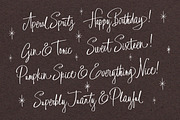 Aperol Spritz Happy Birthday!
Gin & Tonic Sweet Sixteen!
Pumpkin Spice & Everything Nice!
Superbly Jaunty & Playful